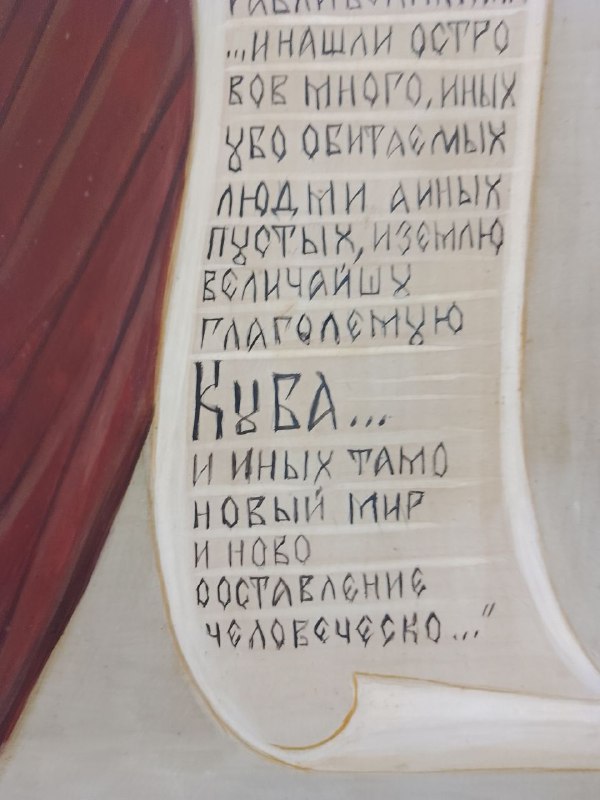 ...И НАШЛИ ОСТРО
ВОВ МНОГО, ИНЫХ
УБО ОБИТАЕМЫХ
ЛЮДМИ А ИНЫХ
ПУСТЫХ, И ЗЕМЛЮ
ВЕЛИЧАЙШУ
ГЛАГОЛЕМУЮ
КУБА...
И ИНЫХ ТАМО
НОВЫЙ МИР
И НОВО
СОСТАВЛЕНИЕ
ЧЕЛОВЕЧЕСКО..."